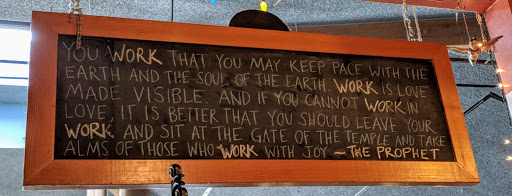 YOU WORK THAT YOU MAY KEEP PACE WITH THE
EARTH AND THE SOUL OF THE EARTH. WORK IS LOVE
MADE VISIBLE. AND IF YOU CANNOT WORK IN
LOVE, IT IS BETTER THAT YOU SHOULD LEAVE YOUR
WORK AND SIT AT THE GATE OF THE TEMPLE AND TAKE
ALMS OF THOSE WHO WORK WITH JOY — THE PROPHET